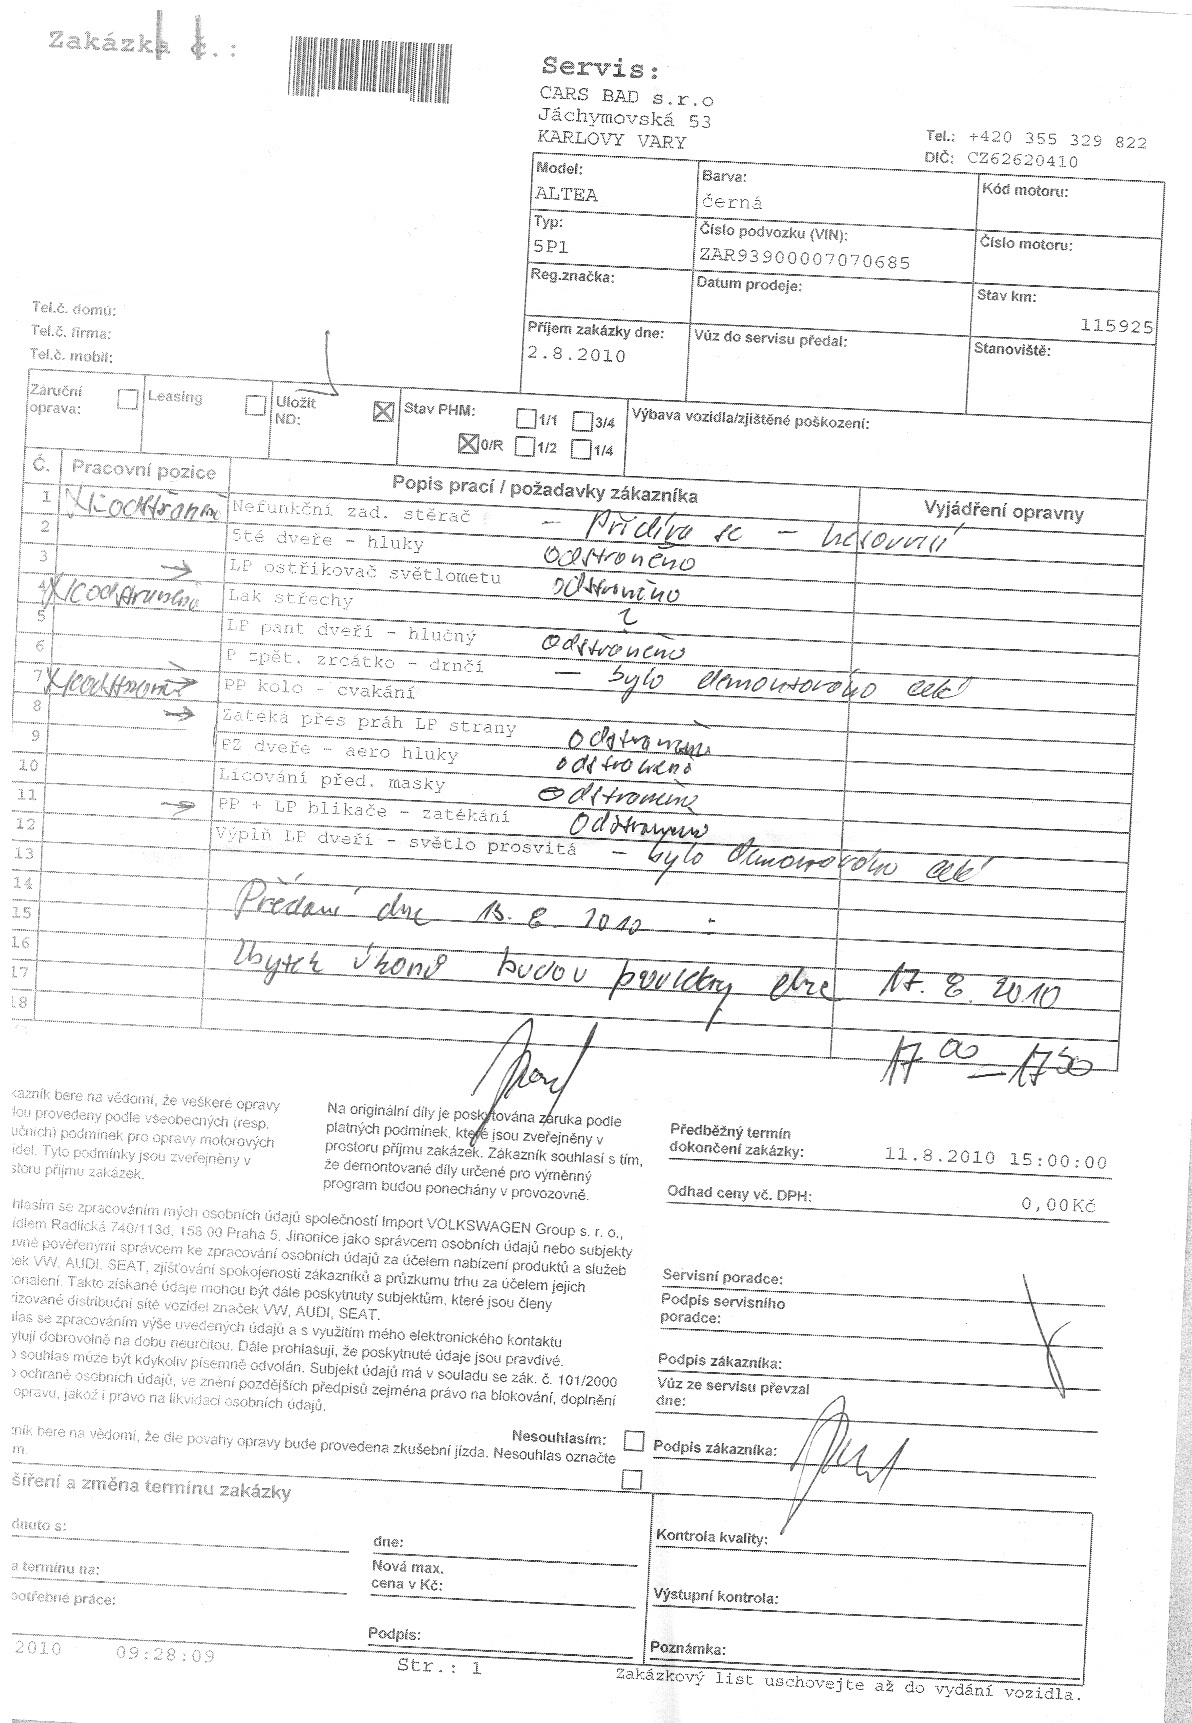 Zakázka č.:
Servis:
CARS BAD s.r.o
Jáchymovská 53
KARLOVY VARY
Tel.: +420 355 329 822
DIČ: CZ62620410
Model: Barva: Kód motoru:
ALTEA černá
Typ: Číslo podvozku (VIN): Číslo motoru:
5P1 ZAR93900007070685
Reg.značka: Datum prodeje: Stav km:
115925
Příjem zakázky dne: Vůz do servisu předal: Stanoviště:
2.8.2010
Tel.č. domů:
Tel.č. firma:
Tel.č. mobil:
Záruční oprava: Leasing Uložit ND: Stav PHM: 1/1 3/4 Výbava vozidla/zjištěné poškození:
0/R 1/2 1/4
Č. Pracovní pozice Popis prací / požadavky zákazníka Vyjádření opravny
1 Nefunkční zad. stěrač – Přidívá se –
2 5té dveře - hluky odstraněno
3 LP ostřikovač světlometu odstraněno
4 Lak střechy
5 LP pant dveří - hlučný odstraněno
6 P zpět. zrcátko - drnčí – bylo demontováno celé
7 PP kolo - cvakání
8 Zatéká přes práh LP strany odstraněno
9 PZ dveře - aero hluky odstraněno
10 Licování před. masky odstraněno
11 PP + LP blikače - zatékání odstraněno
12 Výplň LP dveří - světlo prosvitá – bylo demontováno celé
13
14 Předání dne 13. 8 2010 :
15
16 Zbytek úkonů budou dne 17. 8. 2010
17
18
17 00 – 17 30
kazník bere na vědomí, že veškeré opravy
dou provedeny podle všeobecných (resp.
učních) podmínek pro opravy motorových
idel. Tyto podmínky jsou zveřejněny v
storu příjmu zakázek.
Na originální díly je poskytována záruka podle
platných podmínek, které jsou zveřejněny v
prostoru příjmu zakázek. Zákazník souhlasí s tím,
že demontované díly určené pro výměnný
program budou ponechány v provozovně.
Předběžný termín
dokončení zakázky: 11.8.2010 15:00:00
Odhad ceny vč. DPH: 0,00Kč
hlasím se zpracováním mých osobních údajů společností Import VOLKSWAGEN Group s. r. o.,
ídlem Radlická 740/113d, 158 00 Praha 5, Jinonice jako správcem osobních údajů nebo subjekty
ávně pověřenými správcem ke zpracování osobních údajů za účelem nabízení produktů a služeb
ček VW, AUDI, SEAT, zjišťování spokojenosti zákazníků a průzkumu trhu za účelem jejich
onalení. Takto získané údaje mohou být dále poskytnuty subjektům, které jsou členy
rizované distribuční sítě vozidel značek VW, AUDI, SEAT.
hlas se zpracováním výše uvedených údajů a s využitím mého elektronického kontaktu
ytuji dobrovolně na dobu neurčitou. Dále prohlašuji, že poskytnuté údaje jsou pravdivé.
o souhlas může být kdykoliv písemně odvolán. Subjekt údajů má v souladu se zák. č. 101/2000
o ochraně osobních údajů, ve znění pozdějších předpisů zejména právo na blokování, doplnění
opravu, jakož i právo na likvidaci osobních údajů.
Servisní poradce:
Podpis servisního
poradce:
Podpis zákazníka:
Vůz ze servisu převzal
dne:
Podpis zákazníka:
Nesouhlasím:
zník bere na vědomí, že dle povahy opravy bude provedena zkušební jízda. Nesouhlas označte
m.
šíření a změna termínu zakázky
dnuto s: dne:
a termínu na: Nová max.
cena v Kč:
potřebné práce:
Podpis:
Kontrola kvality:
Výstupní kontrola:
Poznámka:
2010 09:28:09
Str.: 1
Zakázkový list uschovejte až do vydání vozidla.